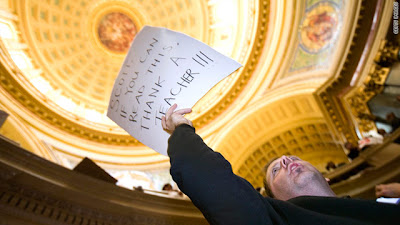 SCOTT, IF
YOU CAN
READ THIS,
THANK A
TEACHER!!!
GETTY IMAGES